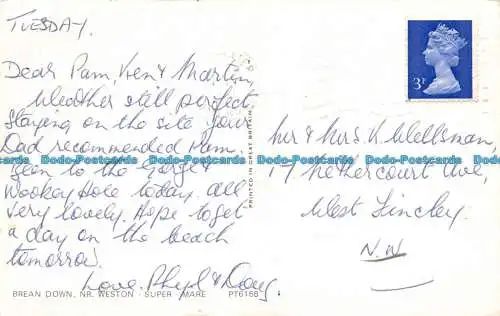 TUESDAY.
Dear Pam, Ken & Martin,
Weather still perfect.
Staying on the site your
Dad recommended Pam.
Been to the Gorge &
Wookey Hole today. all
very lovely. Hope to get
a day on the beach
tomorrow.
Love. Phyl & Doug.
BREAN DOWN, NR. WESTON - SUPER - MARE PT6168
PRINTED IN GREAT BRITAIN
3P
Mr & Mrs K. Wellsman,
17 Nethercourt Ave,
West Finchley.
N.W
Dodo-Postcards Dodo-Postcards Dodo-Postcards Dodo-Postcards Dodo-Postcards